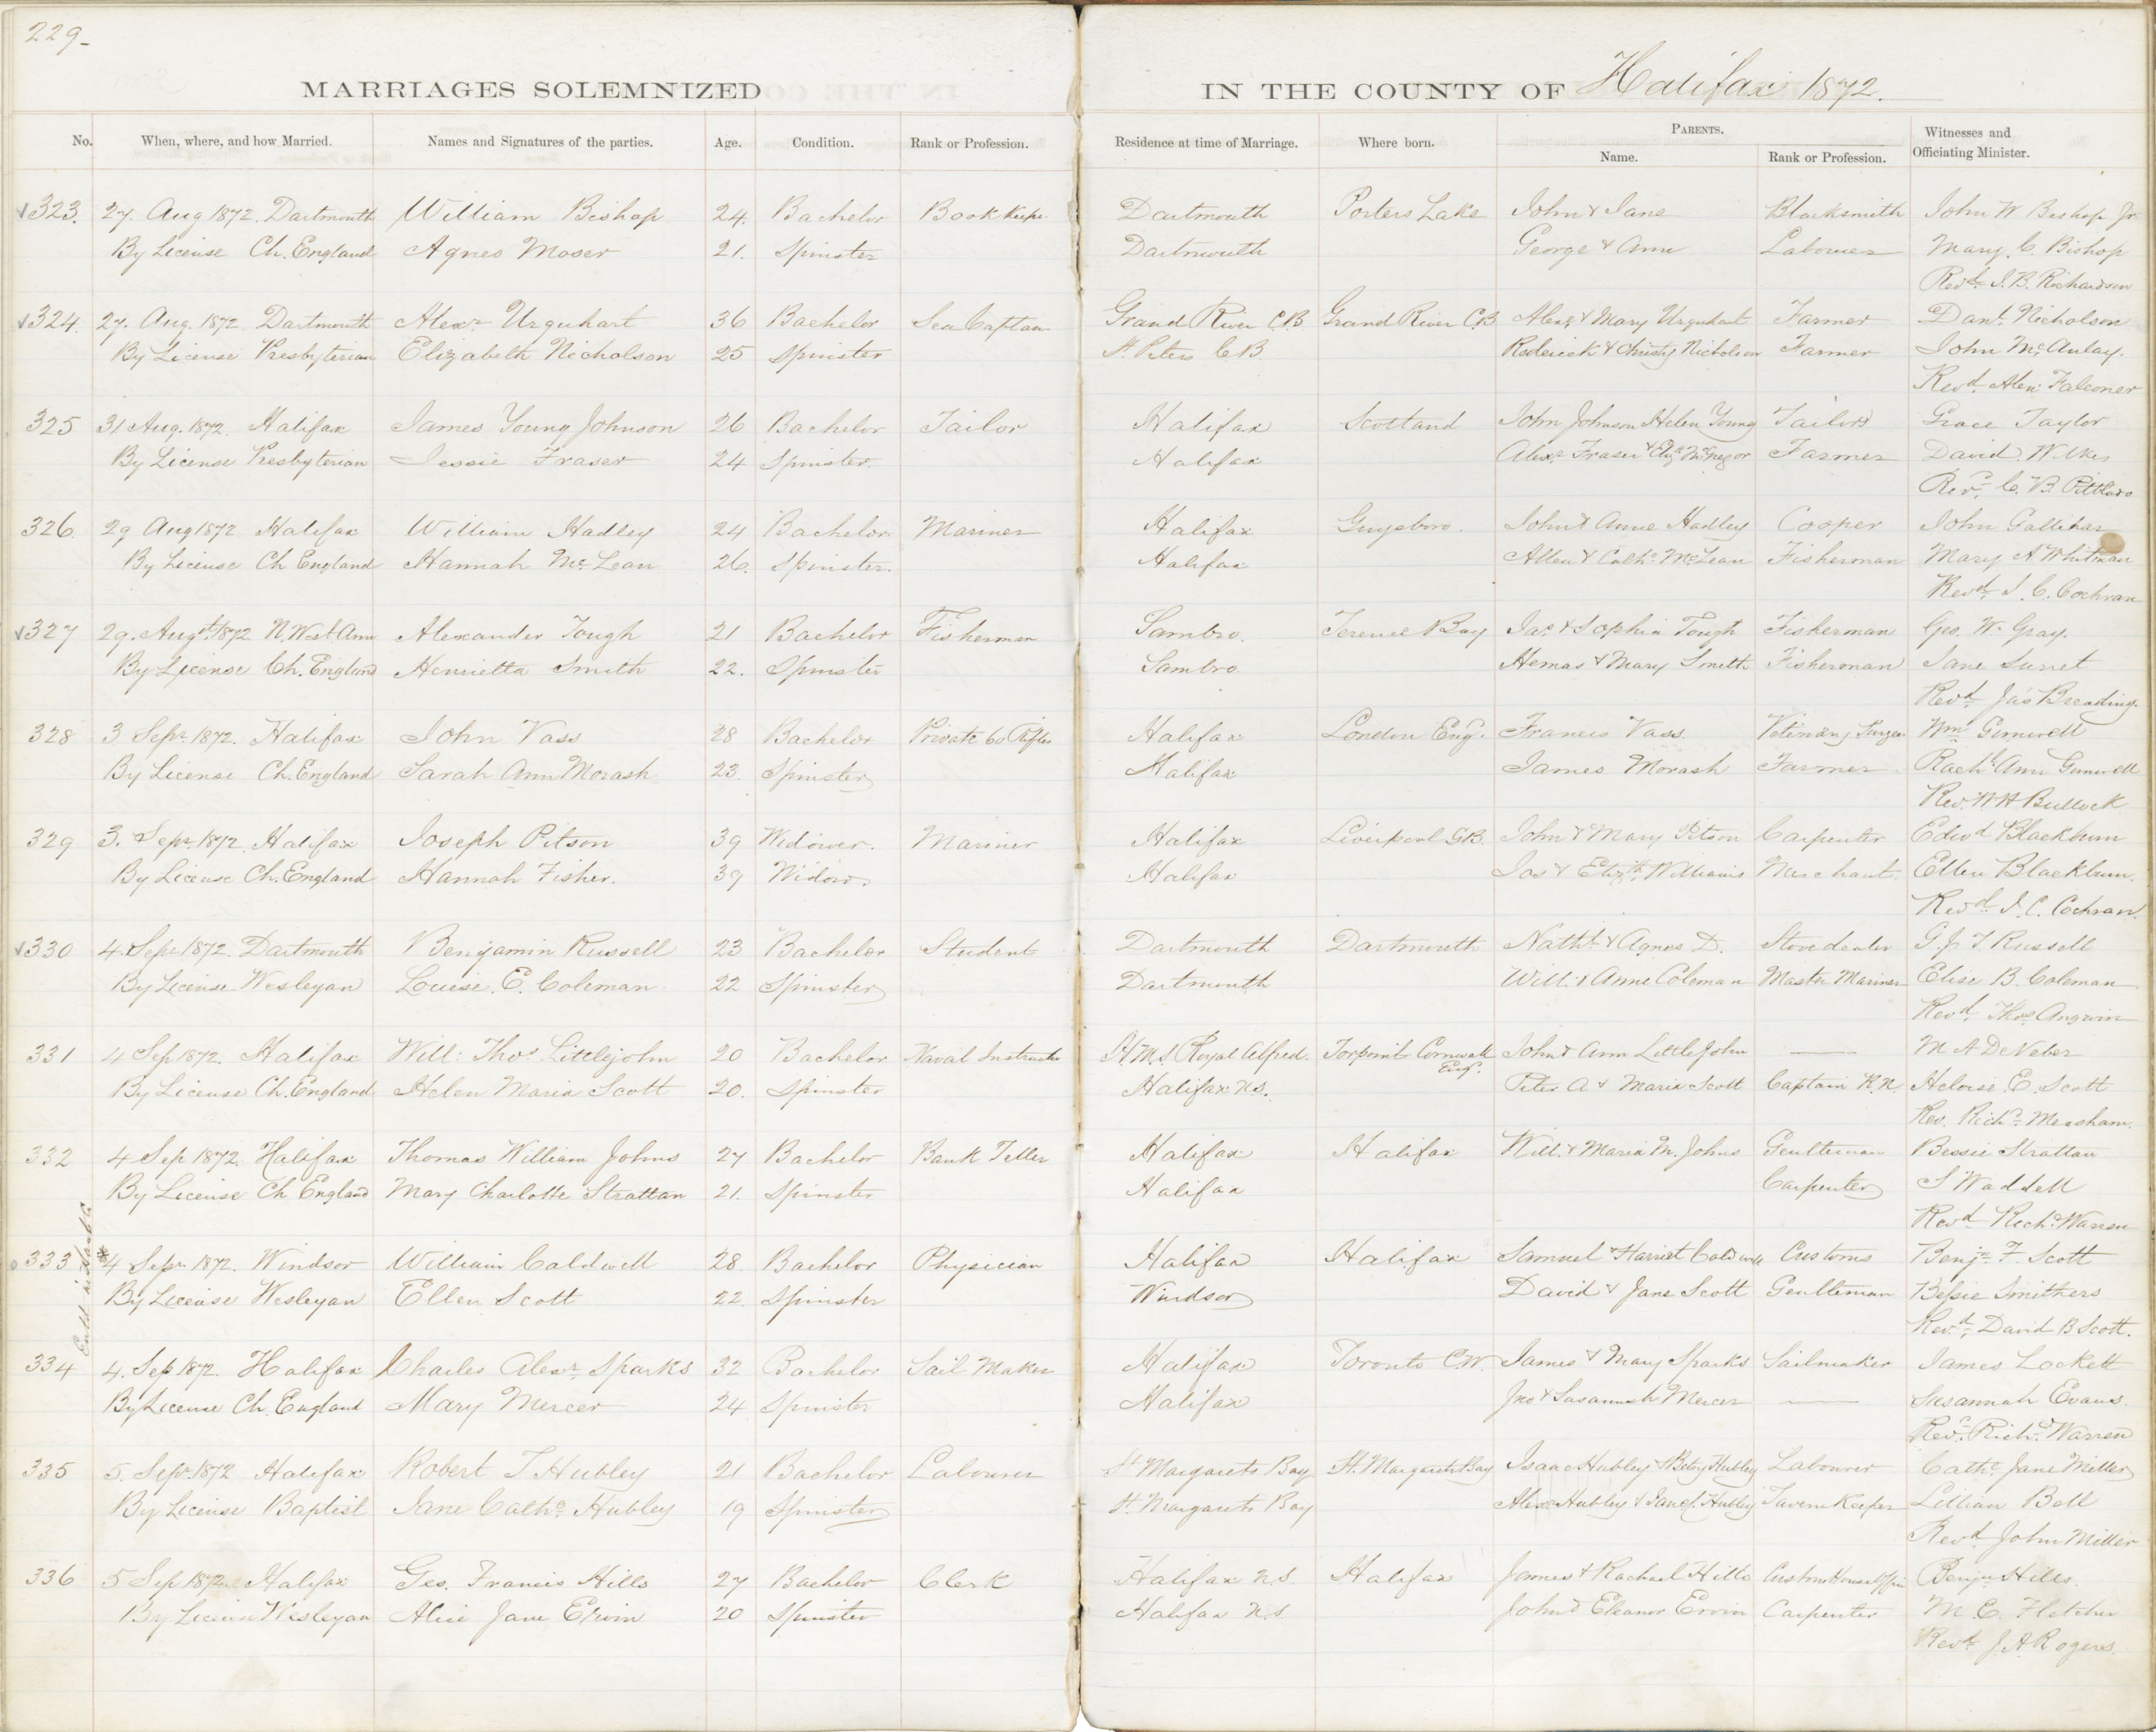 229-
MARRIAGES SOLEMNIZED IN THE COUNTY OF Halifax 1872.
No. When, where, and how Married. Names and Signatures of the parties. Age. Condition. Rank or Profession. Residence at time of Marriage. Where born. PARENTS. Name. Rank or Profession. Witnesses and Officiating Minister.
323. 27. Aug 1872. Dartmouth William Bishop 24. Bachelor Book Keeper Dartmouth Porters Lake John & Jane Blacksmith John W Bishop Jr
By License Ch. England Agnes Moser 21. Spinster Dartmouth George & Ann Labourer Mary. C. Bishop
Revd. J. B. Richardson
324. 27. Aug. 1872. Dartmouth Alexr Urquhart 36 Bachelor Sea Captan Grand River C.B Grand River C.B Alexr & Mary Urquhart Farmer Danl. Nicholson
By License Presbyterian Elizabeth Nicholson 25 Spinster St. Peters C B. Roderick & Christy Nicholson Farmer John McAulay.
Revd. Alex. Falconer
325 31 Aug. 1872. Halifax James Young Johnson 26 Bachelor Tailor Halifax Scotland John Johnson Helen Young Tailor Grace Taylor
By License Presbyterian Jessie Fraser 24 Spinster. Halifax Alexr. Fraser & Elizh McGregor Farmer David. Wilkes
Revd. C. B. Pitblado
326. 29 Aug 1872 Halifax William Hadley 24 Bachelor. Mariner Halifax Guysboro. John & Anne Hadley Cooper John Gallihar
By License Ch England Hannah McLean 26. Spinster. Halifax Allen & Cathe. McLean Fisherman Mary A Whitman
Revd. J. C. Cochran
327 29. Augst. 1872 N. West Arm Alexander Tough 21 Bachelor Fisherman Sambro. Terence Bay Jas. & Sophia Tough Fisherman Geo. W. Gray.
By License Ch. England Henrietta Smith 22. Spinster Sambro. Hemas & Mary Smith Fisherman Jane Surret
Revd. Jas Breading.
328 3 Sepr. 1872. Halifax John Vass 28 Bachelor Private 60 Rifles Halifax London Eng. Francis Vass. Vetinary Surgeon Wm Gemwell
By License Ch. England Sarah Ann Morash 23. Spinster Halifax James Morash Farmer Rachl Ann Gemwell
Rev. W H Bullock
329 3. Sepr. 1872. Halifax Joseph Pitson 39 Widower. Mariner Halifax Liverpool G.B. John & Mary Pitson Carpenter Edwd Blackburn
By License Ch. England Hannah Fisher. 39 Widow. Halifax Jos & Elizth. Williams Merchant. Ellen Blackburn.
Revd. J. C. Cochran.
330 4. Sepr 1872. Dartmouth Benjamin Russell 23 Bachelor Student Dartmouth Dartmouth Nathl. & Agnes D. Stovedealer G. J. T Russell
By License Wesleyan Louise. E. Coleman 22 Spinster Dartmouth Will: & Anne Coleman Master Mariner Elise B. Coleman
Revd. Thos Angwin
331 4 Sep 1872. Halifax Will: Thos. Littlejohn 20 Bachelor Naval Instructor H.M.S. Royal Alfred. Torpoint Cornwall Eng. John & Ann LittleJohn —— M A DeVeber
By License Ch. England Helen Maria Scott 20. Spinster Halifax N.S. Peter A & Maria Scott Captain R.N. Heloise. E. Scott
Rev. Richd. Measham.
332 4 Sep 1872. Halifax Thomas William Johns 27 Bachelor Bank Teller Halifax Halifax Will. & Maria M. Johns Gentleman Bessie Strattan
By License Ch England Mary Charlotte Strattan 21. Spinster Halifax Carpenter S Waddell
Revd. Richd. Warren
Entd in Hants Co
333 *4 Sepr 1872. Windsor William Caldwell 28. Bachelor Physician Halifax Halifax Samuel & Harriet Caldwell Customs Benjn. F. Scott
By License Wesleyan Ellen Scott 22. Spinster Windsor David & Jane Scott Gentleman Bessie Smithers
Revd. David B Scott.
334 4. Sep 1872. Halifax Charles Alexr. Sparks 32 Bachelor Sail Maker Halifax Toronto C.W. James & Mary Sparks Sailmaker James Lockett
By License Ch. England Mary Mercer 24 Spinster Halifax Jno & Susannah Mercer —— Susannah Evans.
Revd. Richd. Warren
335 5. Sepr. 1872 Halifax Robert T Hubley 21 Bachelor Labourer St Margarets Bay St. Margarets Bay Isaac Hubley & Betsy Hubley Labourer Cathe. Jane Miller
By License Baptist Jane Cathe. Hubley 19 Spinster St. Margarets Bay Alexr Hubley & Jane C. Hubley Tavern Keeper Lillian Bell
Revd John Miller
336 5 Sep 1872. Halifax Geo. Francis Hills 27 Bachelor Clerk Halifax N.S. Halifax James & Rachael Hills Custom House Officer Benjn Hills.
By License Wesleyan Alice Jane Ervin 20 Spinster Halifax N.S. John & Eleanor Ervin Carpenter M. C. Fletcher
Revd. J. A Rogers.